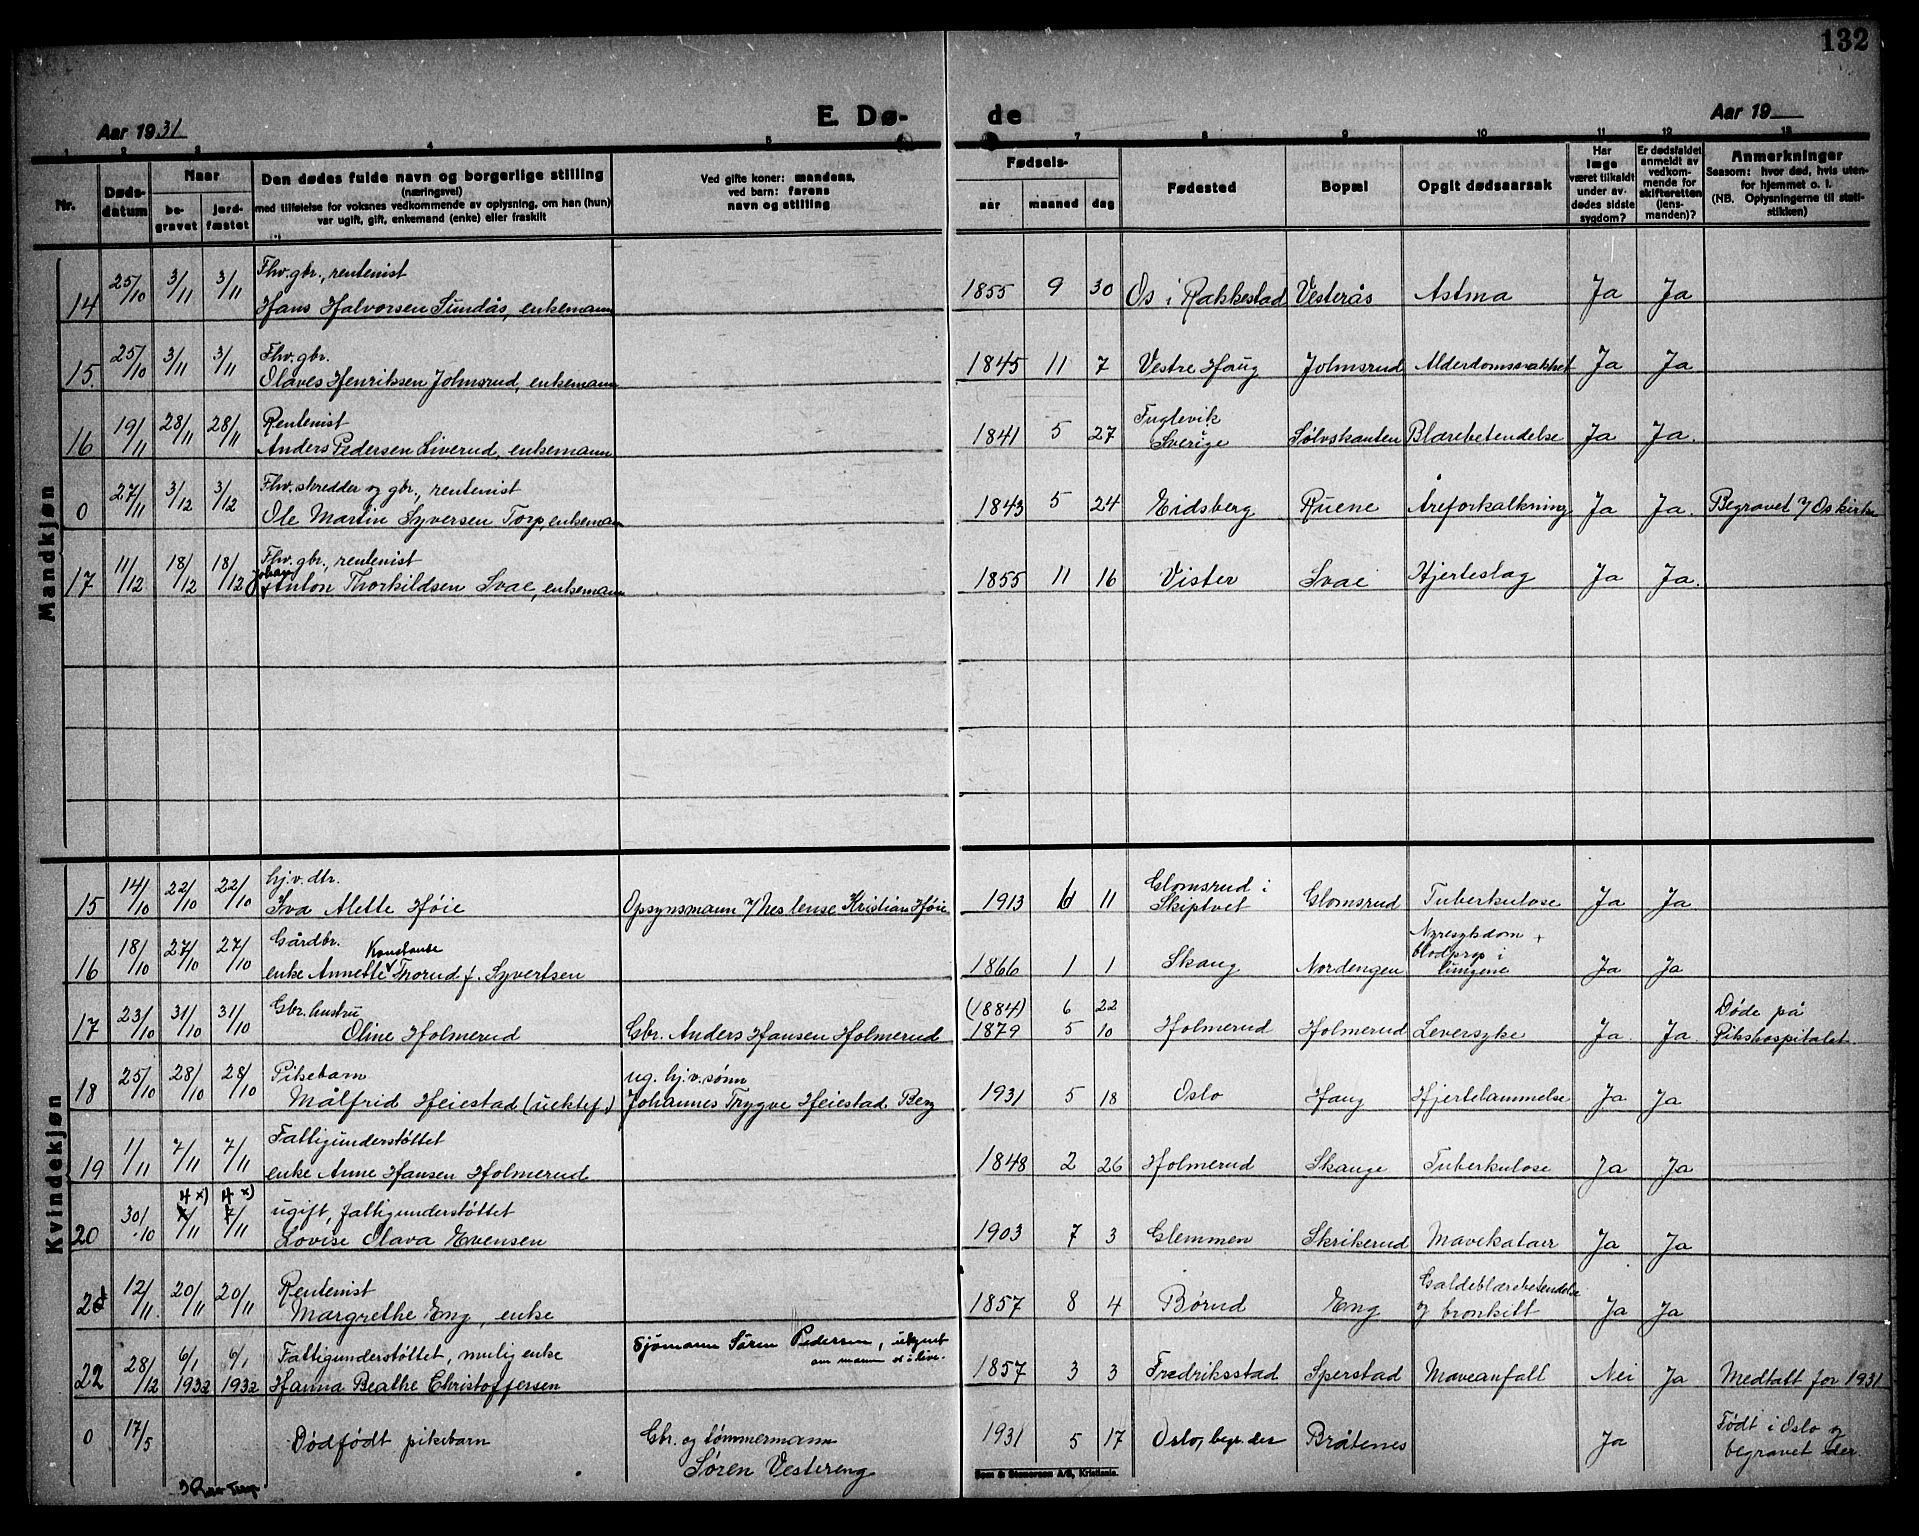 132
E. Dø- de
Aar 1931
Aar 19
1 2 3 4 5 7 8 9 10 11 12 13
Nr.
Døds-
datum
Naar
be-
gravet
jord-
fæstet
Den dødes fulde navn og borgerlige stilling
(næringsvei)
med tilføielse for voksnes vedkommende av oplysning, om han (hun)
var ugift, gift, enkemand (enke) eller fraskilt
Ved gifte koner: mandens,
ved barn: farens
navn og stilling
Fødsels-
aar maaned dag
Fødested
Bopæl
Opgit dødsaarsak
Har
læge
været tilkaldt
under av-
dødes sidste
sygdom?
Er dødsfaldet
anmeldt av
vedkom-
mende for
skifteretten
(lens-
manden)?
Anmerkninger
Seasom: hvor død, hvis uten-
for hjemmet o. l.
(NB. Oplysningerne til stati-
stikken)
Mandkjøn
14 25/10 3/11 3/11 Fhv. gbr., rentenist
Hans Halvorsen Sundås, enkemann 1855 9 30 Os i Rakkestad Vesterås Astma Ja Ja
15. 25/10 3/11 3/11 Fhv. gbr.
Olaves Henriksen Jolmsrud, enkemann 1845 11 7 Vestre Haug Jolmsrud Alderdomssvakhet Ja Ja
16 19/11 28/11 28/11 Rentenist
Anders Pedersen Liverud, enkemann 1841 5 27 Fuglevik
Sverige Sølvskanten Blærebetendelse Ja Ja.
0 27/11 3/12 3/12 Fhv. skredder og gbr., rentenist
Ole Martin Syversen Torp, enkemann 1843 5 24 Eidsberg Ruene Åreforkalkning Ja Ja. Begravet v/ Os kirke
17 11/12 18/12 18/12 Fhv. gbr., rentenist
Johan Anton Thorkildsen Svae, enkemann 1855 11 16 Vister Svae Hjerteslag Ja Ja.
Kvindekjøn
15 14/10 22/10 22/10 hj.v. dtr.
Iva Alette Høie Opsynsmann v/ Nes lense Kristian Høie 1913 6 11 Glomsrud i
Skiptvet Glomsrud Tuberkulose Ja Ja
16 18/10 27/10 27/10 Gårdbr. Konstanse
enke Annette Thorud f. Syvertsen 1866 1 1 Skaug Nordengen Nyresykdom +
blodprop i
lungene Ja Ja
17 23/10 31/10 31/10 Gbr. hustru
Oline Holmerud Gbr. Anders Hansen Holmerud (1884) 6 22
1879 5 10 Holmerud Holmerud Leversyke Ja. Ja. Døde på
Rikshospitalet.
18 25/10 28/10 28/10 Pikebarn
Målfrid Heiestad (uektef.) ug. hj.v. sønn
Johannes Trygve Heiestad Berg 1931 5 18 Oslo Haug Hjertelammelse Ja Ja
19 1/11 7/11 7/11 Fattigunderstøttet
enke Anne Hansen Holmerud 1848 2 26 Holmerud Skauge Tuberkulose Ja Ja
20 30/10 4 x) /11 4 x) /11 ugift, fattigunderstøttet
Lovise Olava Evensen 1903 7 3 Glemmen Skrikerud Mavekatarr Ja Ja
21 12/11. 20/11 20/11 Rentenist
Margrethe Eng, enke 1857 8 4 Børud Eng Galdeblærebetendelse
og bronkitt Ja Ja
22 28/12 6/1 1932 6/1 1932 Fattigunderstøttet, mulig enke
Hanna Beathe Christoffersen Sjømann Søren Pedersen, ukjent
om mann er i live. 1857 3 3 Fredriksstad Sperstad Maveanfall Nei Ja Medtatt for 1931
0 17/5 Dødfødt pikebarn Gbr. og tømmermann
Søren Vestereng 1931 5 17 Oslo, begr. der Bråtenes Ja Født i Oslo og
begravet der
Sem & Stenersen A/S, Kristiania.